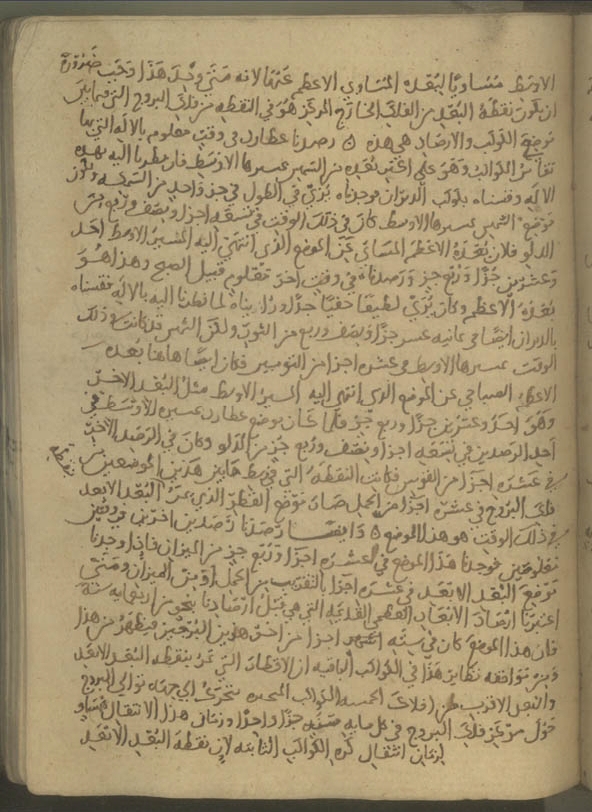 الاوسط مساويا لبعده المساوي الاعظم عنها لانه متى وجد هذا وجب ضرورة
ان يكون نقطة البعد من الفلك الخارج المركز هو في النقطة من فلك البروج التي فيما بين
موضع الكواكب والارصاد هي هذه ه رصدنا عطارد في وقت معلوم بالاله التي بها
تقاس الكواكب وهو على اعظم بعده من الشمس بمسيرها الاوسط فلما نظرنا اليه بهذه
الاله وقسناه بكوكب الدبران فوجدناه يرى في الطول في جزو واحد من السمكه و
موضع الشمس بمسيرها الاوسط كان في ذلك الوقت في تسعة اجزا ونصف وربع جزو من
الدلو فلان بعده الاعظم المسائي عن الموضع الذي انتهى اليه المسير الاوسط احد
وعشرين جزا وربع جزو ورصدناه في وقت اخر معلوم قبيل الصبح وهذا هو
بعده الاعظم وكان يرى لطيفا خفيا جدا ورايناه لما نظرنا اليه بالاله فقسناه
بالدبران ايضا في ثمانيه عشر جزا ونصف وربع من الثور ولكن الشمس قد كانت في ذلك
الوقت بمسيرها الاوسط في عشره اجزا من فكان ايضا هاهنا بعده
الاعظم الصباحي عن الموضع الذي انتهى اليه المسير الاوسط مثل البعد الاخر
وهو احد وعشرين جزا وربع جزو فلما كان موضع عطارد بمسيره الاوسط في
احد الرصدين في تسعة اجزا ونصف وربع جزو من الدلو وكان في الرصد الاخر
في عشره اجزا من القوس فكانت النقطه التي في وسط ما بين هذين الموضعين من
نقطه
فلك البروج في عشره اجزا من الحمل صار موضع القطر الذي يمر البعد الابعد
في ذلك الوقت هو هذا الموضع ه وايضا رصدنا رصدين اخرين في وقتين
معلومين فوجدنا هذا الموضع في عشره اجزا وربع جزو من الميزان فاذا وجدنا
موضع البعد الابعد في عشره اجزا بالتقريب من الحمل او من الميزان ومتى
اعتبرنا ارصاد الابعاد العظمى القديمه التي هي قبل ارصادنا بنحو من اربعمايه سنه
فان هذا الموضع كان في سته اجزا من احد هذين البرجين فيظهر من هذا
ومن موافقه نظاير هذا في الكواكب الباقيه ان الاقطار التي تمر بنقطه البعد الابعد
والبعد الاقرب من افلاك الخمسه الكواكب المتحيره تتحرك الى جهه توالي البروج
حول مركز فلك البروج في كل مايه سنه جزا واحدا وزمان هذا الانتقال مساو
لزمان انتقال كره الكواكب الثابته لان نقطه البعد الابعد